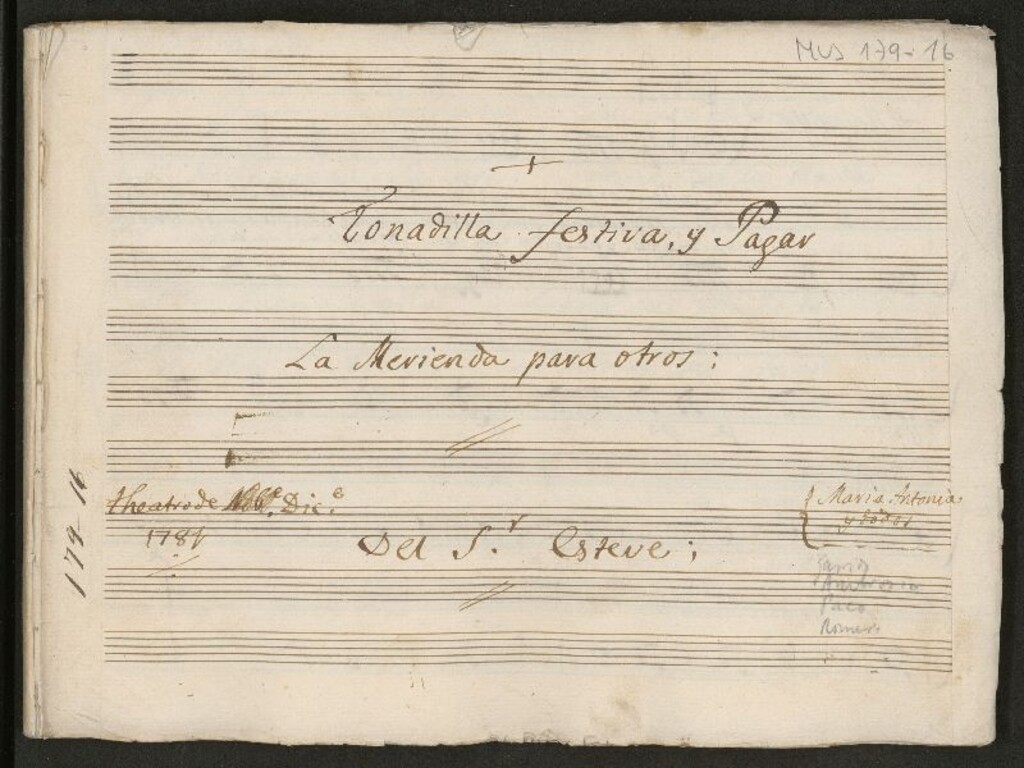 MUS 179-16
Tonadilla festiva, y Pagar
La Merienda para otros;
theatro de Dic.e
1781
Maria Antonia
y todos
Del S.r Esteve;
Paco
Romero
179-16